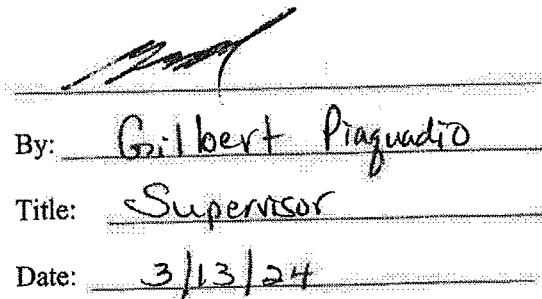 By: Gilbert Piaquadio
Title: Supervisor
Date: 3/13/24